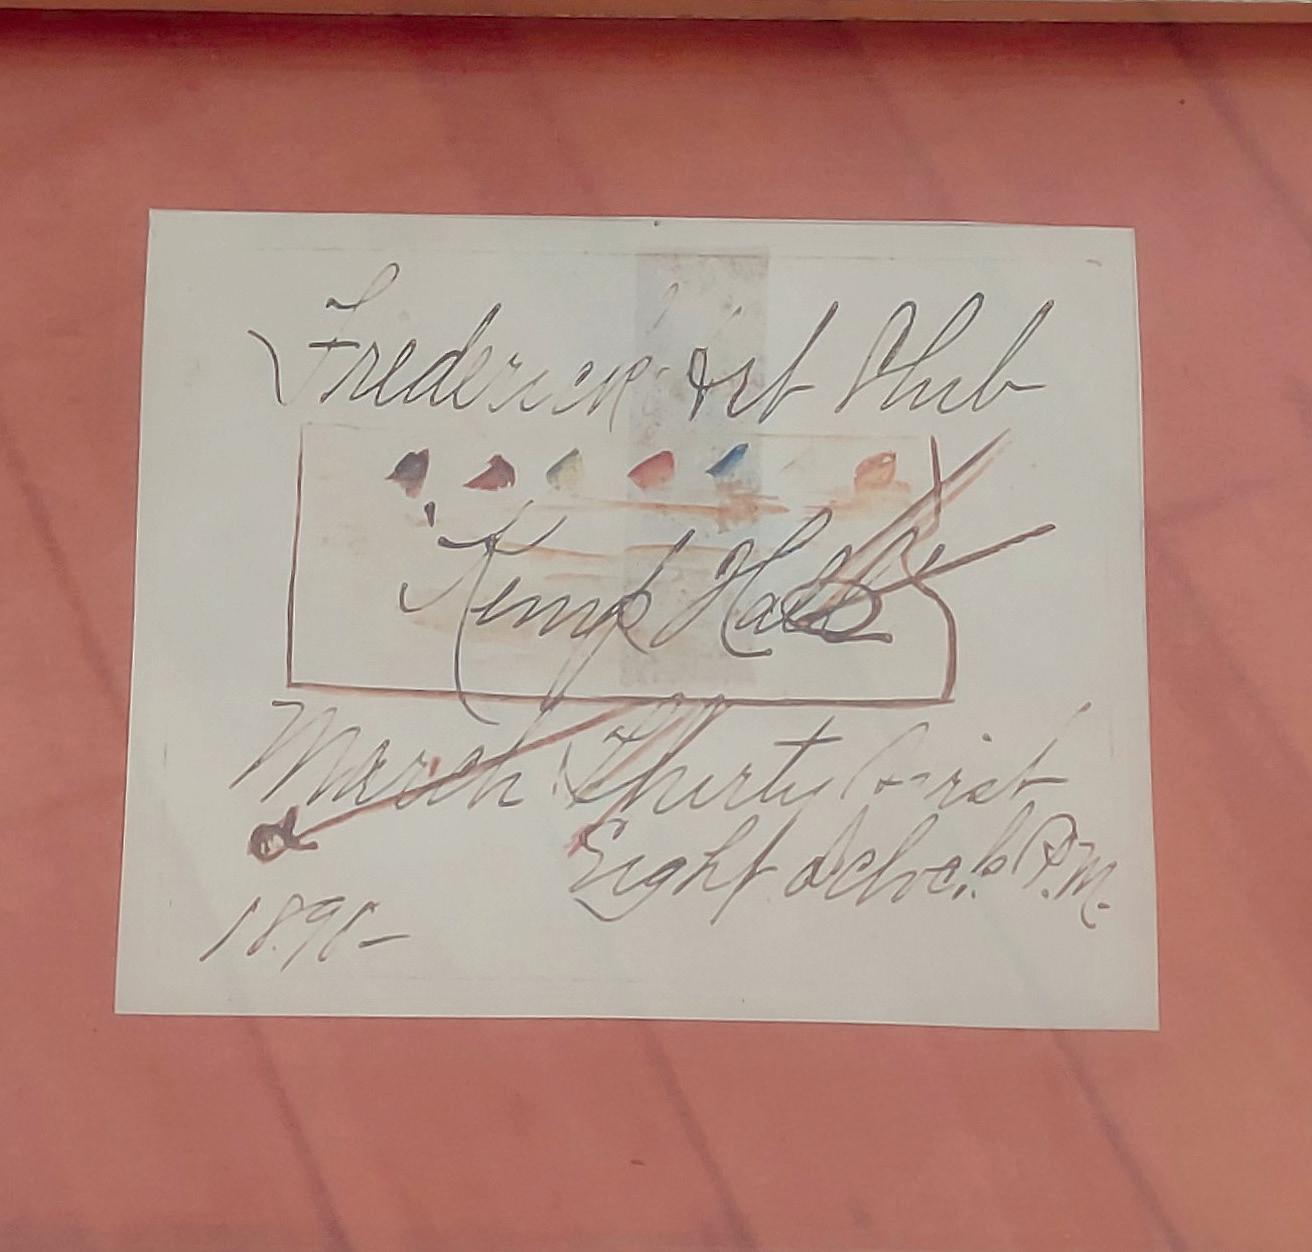 Frederick Art Club
Kemp Hall
March Thirty first
Eight Oclock P.M.
1891-